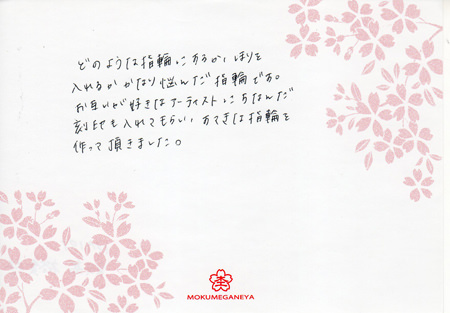 どのような指輪にするか、ほりを
入れるかかなり悩んだ指輪です。
お互いが好きなアーティストにちなんだ
刻印も入れてもらい、すてきな指輪を
作って頂きました。
MOKUMEGANEYA